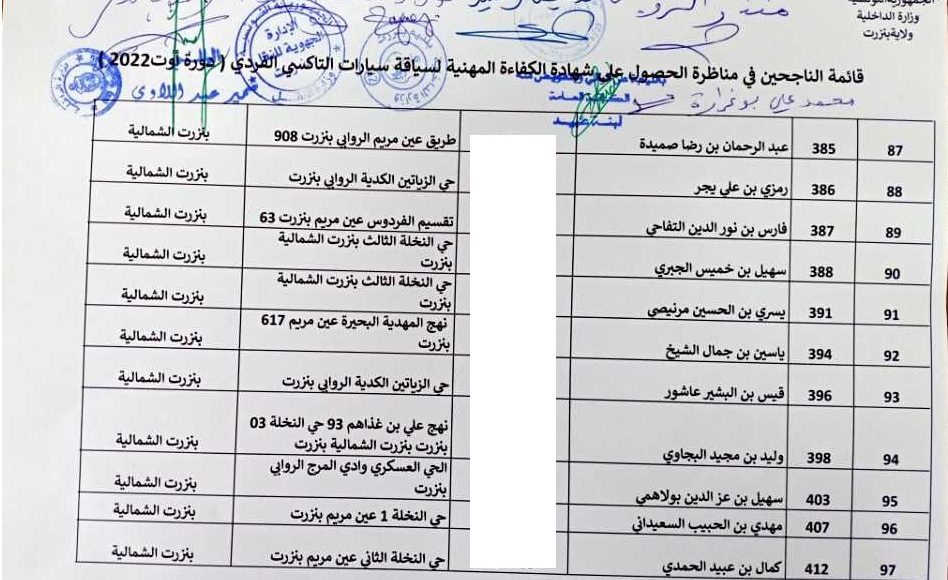 الجمهورية التونسية
وزارة الداخلية
ولاية بنزرت
الإدارة
الجهوية للنقل
قائمة الناجحين في مناظرة الحصول على شهادة الكفاءة المهنية لسياقة سيارات التاكسي الفردي ( دورة أوت2022 )
محمد علي بوغرارة
سمير عبد اللاوي
87 385 عبد الرحمان بن رضا صميدة طريق عين مريم الروابي بنزرت 908 بنزرت الشمالية
88 386 رمزي بن علي يجر حي الزياتين الكدية الروابي بنزرت بنزرت الشمالية
89 387 فارس بن نور الدين التفاحي تقسيم الفردوس عين مريم بنزرت 63 بنزرت الشمالية
90 388 سهيل بن خميس الجبري حي النخلة الثالث بنزرت الشمالية
بنزرت بنزرت الشمالية
91 391 يسري بن الحسين مرنيصي حي النخلة الثالث بنزرت الشمالية
بنزرت بنزرت الشمالية
92 394 ياسين بن جمال الشيخ نهج المهدية البحيرة عين مريم 617
بنزرت بنزرت الشمالية
93 396 قيس بن البشير عاشور حي الزياتين الكدية الروابي بنزرت بنزرت الشمالية
94 398 وليد بن مجيد البجاوي نهج علي بن غذاهم 93 حي النخلة 03
بنزرت بنزرت الشمالية بنزرت بنزرت الشمالية
95 403 سهيل بن عز الدين بولاهمي الحي العسكري وادي المرج الروابي
بنزرت بنزرت الشمالية
96 407 مهدي بن الحبيب السعيداني حي النخلة 1 عين مريم بنزرت بنزرت الشمالية
97 412 كمال بن عبيد الحمدي حي النخلة الثاني عين مريم بنزرت بنزرت الشمالية